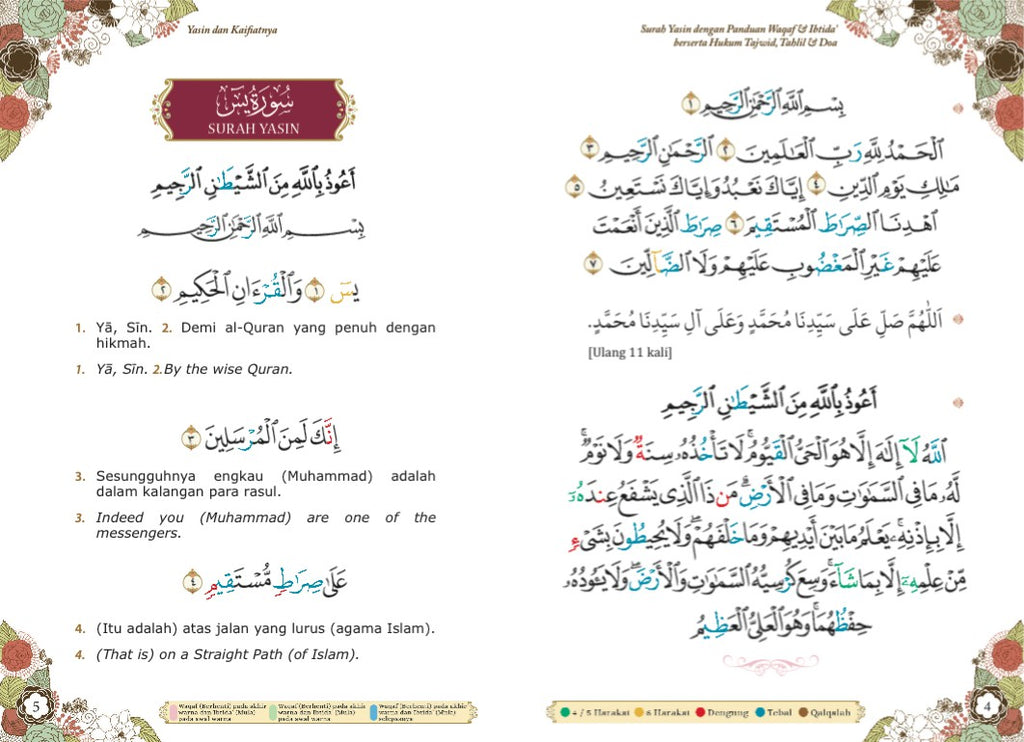 Surah Yasin dengan Panduan Waqaf & Ibtida'
berserta Hukum Tajwid, Tahlil & Doa
بِسْمِ اللَّهِ الرَّحْمَٰنِ الرَّحِيمِ ١
الْحَمْدُ لِلَّهِ رَبِّ الْعَالَمِينَ ٢ الرَّحْمَٰنِ الرَّحِيمِ ٣
مَالِكِ يَوْمِ الدِّينِ ٤ إِيَّاكَ نَعْبُدُ وَإِيَّاكَ نَسْتَعِينُ ٥
اهْدِنَا الصِّرَاطَ الْمُسْتَقِيمَ ٦ صِرَاطَ الَّذِينَ أَنْعَمْتَ
عَلَيْهِمْ غَيْرِ الْمَغْضُوبِ عَلَيْهِمْ وَلَا الضَّالِّينَ ٧
اَللّٰهُمَّ صَلِّ عَلَى سَيِّدِنَا مُحَمَّدٍ وَعَلَى آلِ سَيِّدِنَا مُحَمَّدٍ.
[Ulang 11 kali]
أَعُوذُ بِاللَّهِ مِنَ الشَّيْطَٰنِ الرَّجِيمِ
اللَّهُ لَآ إِلَٰهَ إِلَّا هُوَ الْحَيُّ الْقَيُّومُ ۚ لَا تَأْخُذُهُۥ سِنَةٌ وَلَا نَوْمٌ ۚ
لَّهُۥ مَا فِي السَّمَٰوَٰتِ وَمَا فِي الْأَرْضِ ۗ مَن ذَا الَّذِي يَشْفَعُ عِندَهُۥٓ
إِلَّا بِإِذْنِهِۦ ۚ يَعْلَمُ مَا بَيْنَ أَيْدِيهِمْ وَمَا خَلْفَهُمْ ۖ وَلَا يُحِيطُونَ بِشَيْءٍ
مِّنْ عِلْمِهِۦٓ إِلَّا بِمَا شَآءَ ۚ وَسِعَ كُرْسِيُّهُ السَّمَٰوَٰتِ وَالْأَرْضَ ۖ وَلَا يَـُٔودُهُۥ
حِفْظُهُمَا ۚ وَهُوَ الْعَلِيُّ الْعَظِيمُ
4 / 5 Harakat 6 Harakat Dengung Tebal Qalqalah
4
Yasin dan Kaifiatnya
سُورَةُ يسٓ
SURAH YASIN
أَعُوذُ بِاللَّهِ مِنَ الشَّيْطَٰنِ الرَّجِيمِ
بِسْمِ اللَّهِ الرَّحْمَٰنِ الرَّحِيمِ
يسٓ ١ وَالْقُرْءَانِ الْحَكِيمِ ٢
1. Yā, Sīn. 2. Demi al-Quran yang penuh dengan
hikmah.
1. Yā, Sīn. 2.By the wise Quran.
إِنَّكَ لَمِنَ الْمُرْسَلِينَ ٣
3. Sesungguhnya engkau (Muhammad) adalah
dalam kalangan para rasul.
3. Indeed you (Muhammad) are one of the
messengers.
عَلَىٰ صِرَٰطٍ مُّسْتَقِيمٍ ٤
4. (Itu adalah) atas jalan yang lurus (agama Islam).
4. (That is) on a Straight Path (of Islam).
Waqaf (Berhenti) pada akhir
warna dan Ibtida' (Mula)
pada awal warna
Waqaf (Berhenti) pada akhir
warna dan Ibtida' (Mula)
pada awal warna
Waqaf (Berhenti) pada akhir
warna dan Ibtida' (Mula)
selepasnya
5